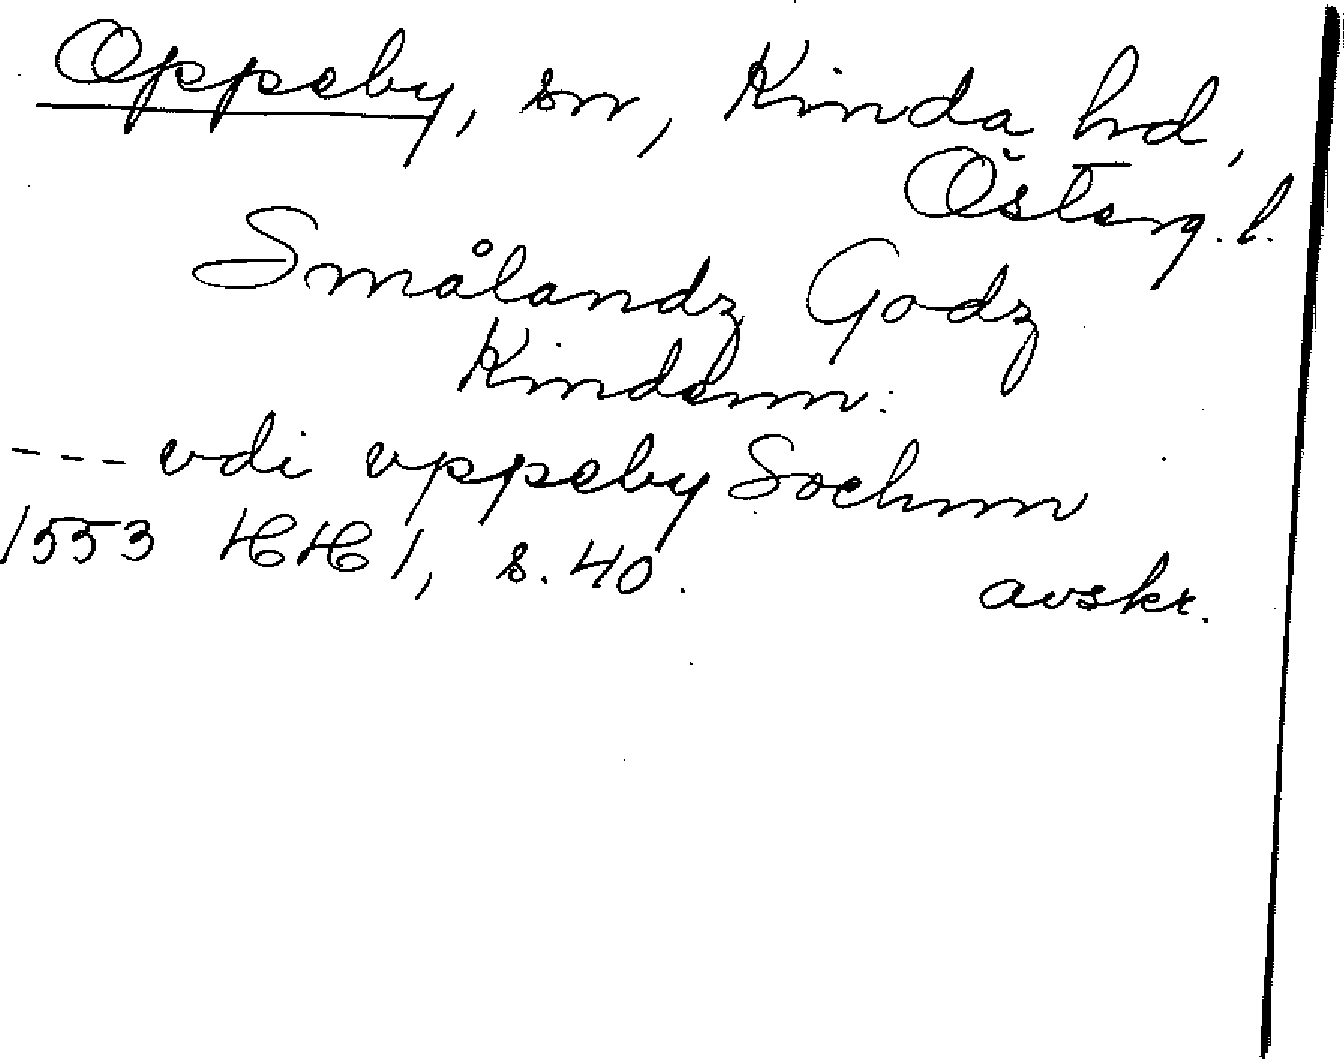 Oppeby, sn, Kinda hd,
Österg. l.
Smålandz Godz
Kindenn:
--- vdi vppeby Sochnn
1553 HH 1, s. 40.
avskr.